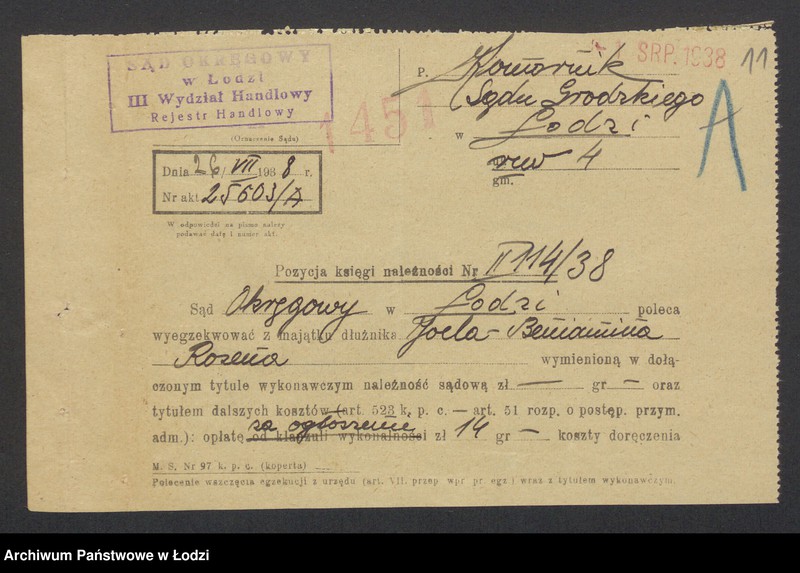 SĄD OKRĘGOWY
w Łodzi
III Wydział Handlowy
Rejestr Handlowy
(Oznaczenie Sądu)
1451
SRP. 1938
11
P. Komornik
Sądu Grodzkiego
w Łodzi
rew 4
gm.
Dnia 26/VII 1938 r.
Nr akt 25603/A
W odpowiedzi na pismo należy
podawać datę i numer akt.
Pozycja księgi należności Nr II 114/38
Sąd Okręgowy w Łodzi poleca
wyegzekwować z majątku dłużnika Joela-Beniamina
Rozena wymienioną w dołą-
czonym tytule wykonawczym należność sądową zł — gr — oraz
tytułem dalszych kosztów (art. 523 k. p. c. — art. 51 rozp. o postęp. przym.
adm.): opłatę od klauzuli wykonalności za ogłoszenie zł 14 gr — koszty doręczenia
M. S. Nr 97 k. p. c. (koperta)
Polecenie wszczęcia egzekucji z urzędu (art. VII. przep wpr pr egz i wraz z tytułem wykonawczym.
Archiwum Państwowe w Łodzi